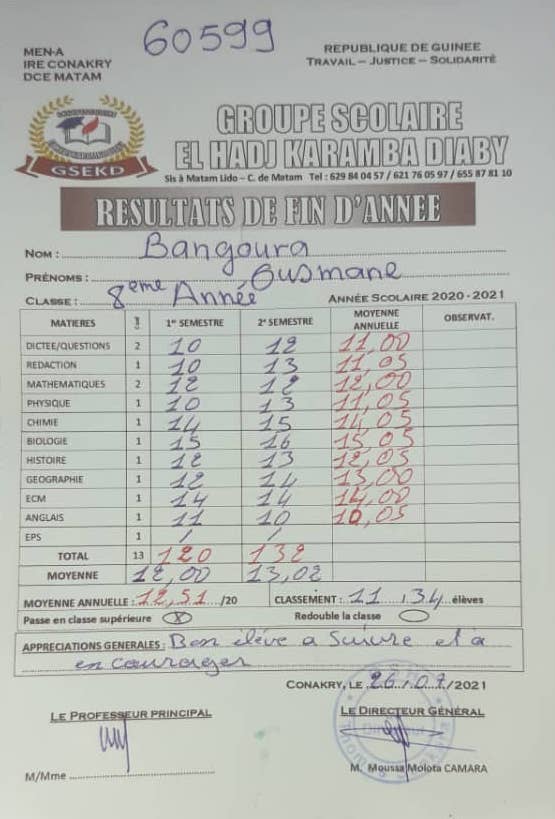 60599
MEN-A
IRE CONAKRY
DCE MATAM
REPUBLIQUE DE GUINEE
TRAVAIL – JUSTICE – SOLIDARITÉ
GSEKD
GROUPE SCOLAIRE
EL HADJ KARAMBA DIABY
Sis à Matam Lido – C. de Matam Tel : 629 84 04 57 / 621 76 05 97 / 655 87 81 10
RESULTATS DE FIN D'ANNEE
NOM : Bangoura
PRÉNOMS : Ousmane
CLASSE : 8eme Année ANNÉE SCOLAIRE 2020 - 2021
MATIERES 1er SEMESTRE 2e SEMESTRE MOYENNE ANNUELLE OBSERVAT.
DICTEE/QUESTIONS 2 10 12 11,00
REDACTION 1 10 13 11,05
MATHEMATIQUES 2 12 12 12,00
PHYSIQUE 1 10 13 11,05
CHIMIE 1 14 15 14,05
BIOLOGIE 1 15 16 15,05
HISTOIRE 1 12 13 12,05
GEOGRAPHIE 1 12 14 13,00
ECM 1 14 14 14,00
ANGLAIS 1 11 10 10,05
EPS 1 / /
TOTAL 13 120 132
MOYENNE 12,00 13,02
MOYENNE ANNUELLE : 12,51 /20 CLASSEMENT : 11 / 34 élèves
Passe en classe supérieure X Redouble la classe
APPRECIATIONS GENERALES : Bon élève a Suivre et a
en courager
CONAKRY, LE 26/07/2021
LE PROFESSEUR PRINCIPAL
LE DIRECTEUR GÉNÉRAL
M/Mme
M. Moussa Molota CAMARA